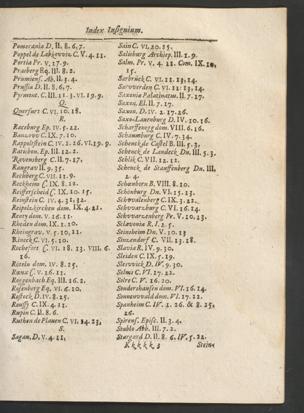 Index Insignium.
Pomerania D. II. 8. 6. 7.
Poppel de Lobkowitz C. V. 4. 11.
Portia Pr. V. 17. 9.
Pracberg Bq. III. 8. 2.
Prumiens. Ab. II. 5. 4.
Prussia D. II. 8. 6. 7.
Pyrmont. C. III. 11. 3. VI. 19. 9.
Q.
Querfurt C. VI. 10. 18.
R.
Raceburg Ep. IV. 5. 22.
Ranzovv C. IX. 7. 10.
Rappolstein C. IV. 2. 26. VI. 19. 9.
Ratisbon. Ep. III. 12. 2.
Ravensberg C. II. 7. 17.
Raugrav II. 9. 35.
Rechberg C. VII. 11. 9.
Reckheim C. IX. 8. 12.
Reifferscheid C. IX. 10. 15.
Reinstein C. IV. 4. 31; 32.
Reipolskirchen dom. IX. 4. 21.
Reozy dom. V. 16. 11.
Rheden dom. IX. 1. 10.
Rheingrav. V. 5. 10, 22.
Rineck C. VI. 5. 10.
Rochefort C. VI. 18. 13. VIII. 6.
16.
Röteln dom. IV. 8. 25.
Ranz C. V. 16. 11.
Roggenbach Eq. III. 16. 2.
Rosenberg Eq. VI. 6. 10.
Rostock D. IV. 8. 25.
Roussy C. IX. 4. 11.
Rupin C. II. 8. 6.
Ruthen de Plauen C. VI. 14. 23,
S.
Sagan, D. V. 4. 11,
Sain C. VI. 20. 15.
Salisburg Archiep. III. 1. 9.
Salm. Pr. V. 4. 11. Com. IX. 10,
15.
Sarbrück C. VI. 11. 13; 14.
Sarwerden C. VI. 11: 13; 14.
Saxonia Palatinatum. II. 7. 17.
Saxon. El. II. 7. 17.
Saxon. D. IV. 2. 17. 26.
Saxo-Lauenburg D. IV. 10. 16.
Scharffenegg dom. VIII. 6. 16.
Schaumburg C. IV. 7. 34.
Schenck de Castell B. III. 5. 3.
Schenck de Landeck Dn. III. 5. 3.
Schlik C. VII. 12. 12.
Schenck de Stauffenberg Dn. III,
2. 4.
Schonborn B. VIII. 8. 20.
Schönburg Dn. VI. 5. 23.
Schwalenberg C. IX. 3. 22.
Schwarzburg C. VI. 16. 14.
Schwarzenberg Pr. V. 10. 23.
Sclavonia R. I. 2. 5.
Seinsheim Dn. V. 10. 23
Sinzendorf C. VII. 13. 18.
Slavia R. IV. 9. 30.
Sleiden C. IX. 5. 19.
Slesvvick D. IV. 9. 30.
Solms C. VI. 17. 22.
Soltz C. V. 16. 20.
Sondershausen dom. VI. 16. 14.
Sonnewvald dom. VI. 17. 22.
Spanheim C. IV. 1. 26. & 8. 25,
26.
Spirens. Episc. II. 3. 4.
Stablo Abb. III. 7. 2.
Stargard D. II. 8. 6. IV. 5. 22.
Kkkkk 3 Stein